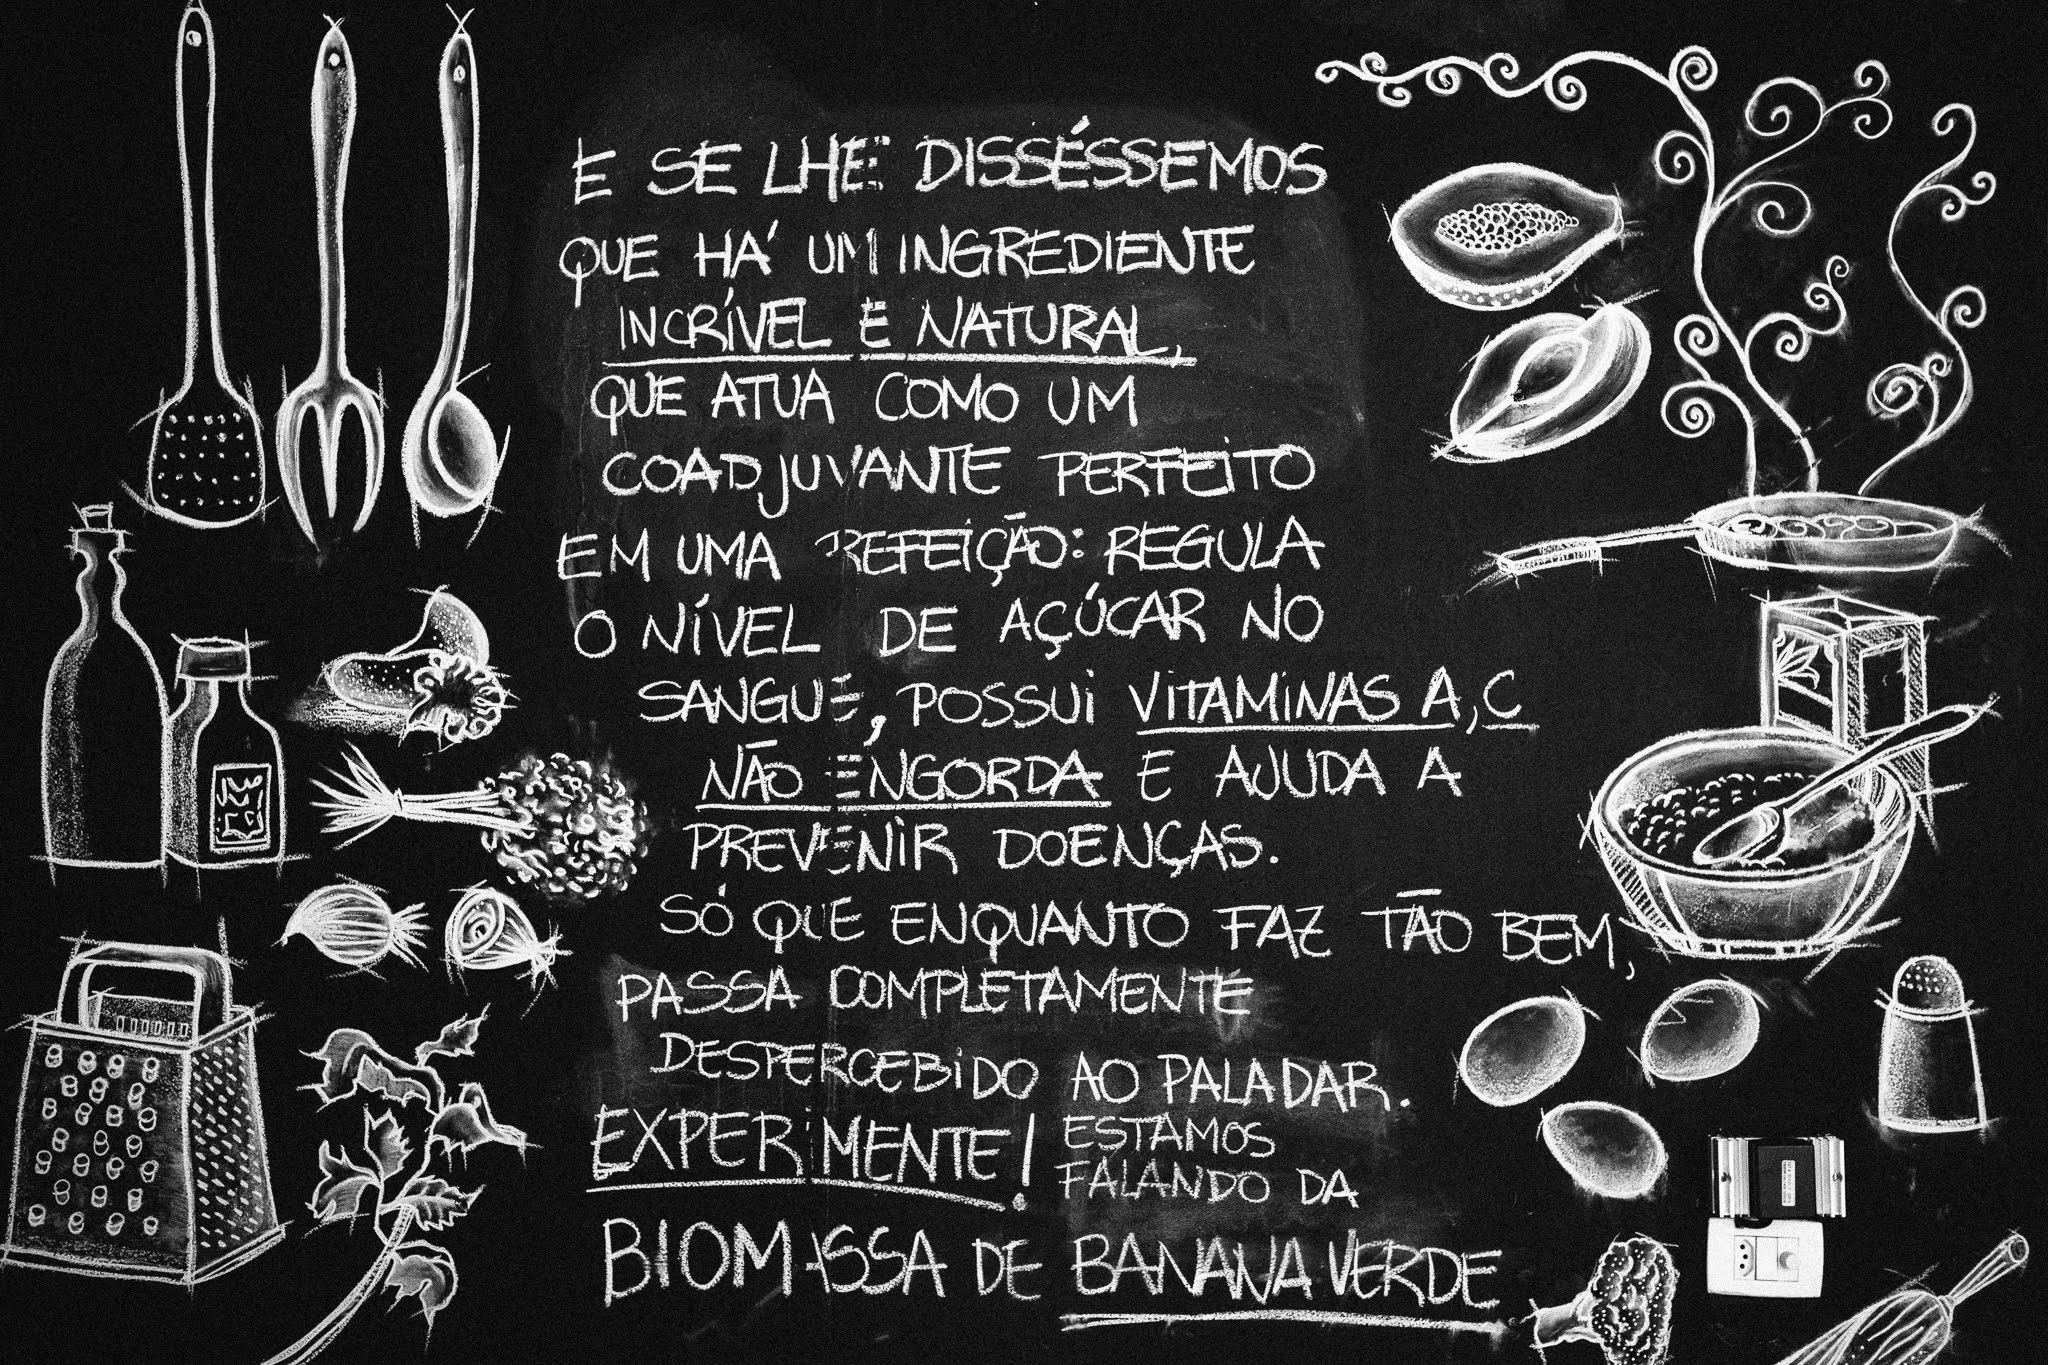 E SE LHE DISSÉSSEMOS
QUE HÁ UM INGREDIENTE
INCRÍVEL E NATURAL,
QUE ATUA COMO UM
COADJUVANTE PERFEITO
EM UMA REFEIÇÃO: REGULA
O NÍVEL DE AÇÚCAR NO
SANGUE, POSSUI VITAMINAS A, C
NÃO ENGORDA E AJUDA A
PREVENIR DOENÇAS.
SÓ QUE ENQUANTO FAZ TÃO BEM,
PASSA COMPLETAMENTE
DESPERCEBIDO AO PALADAR.
EXPERIMENTE! ESTAMOS
FALANDO DA
BIOMASSA DE BANANA VERDE